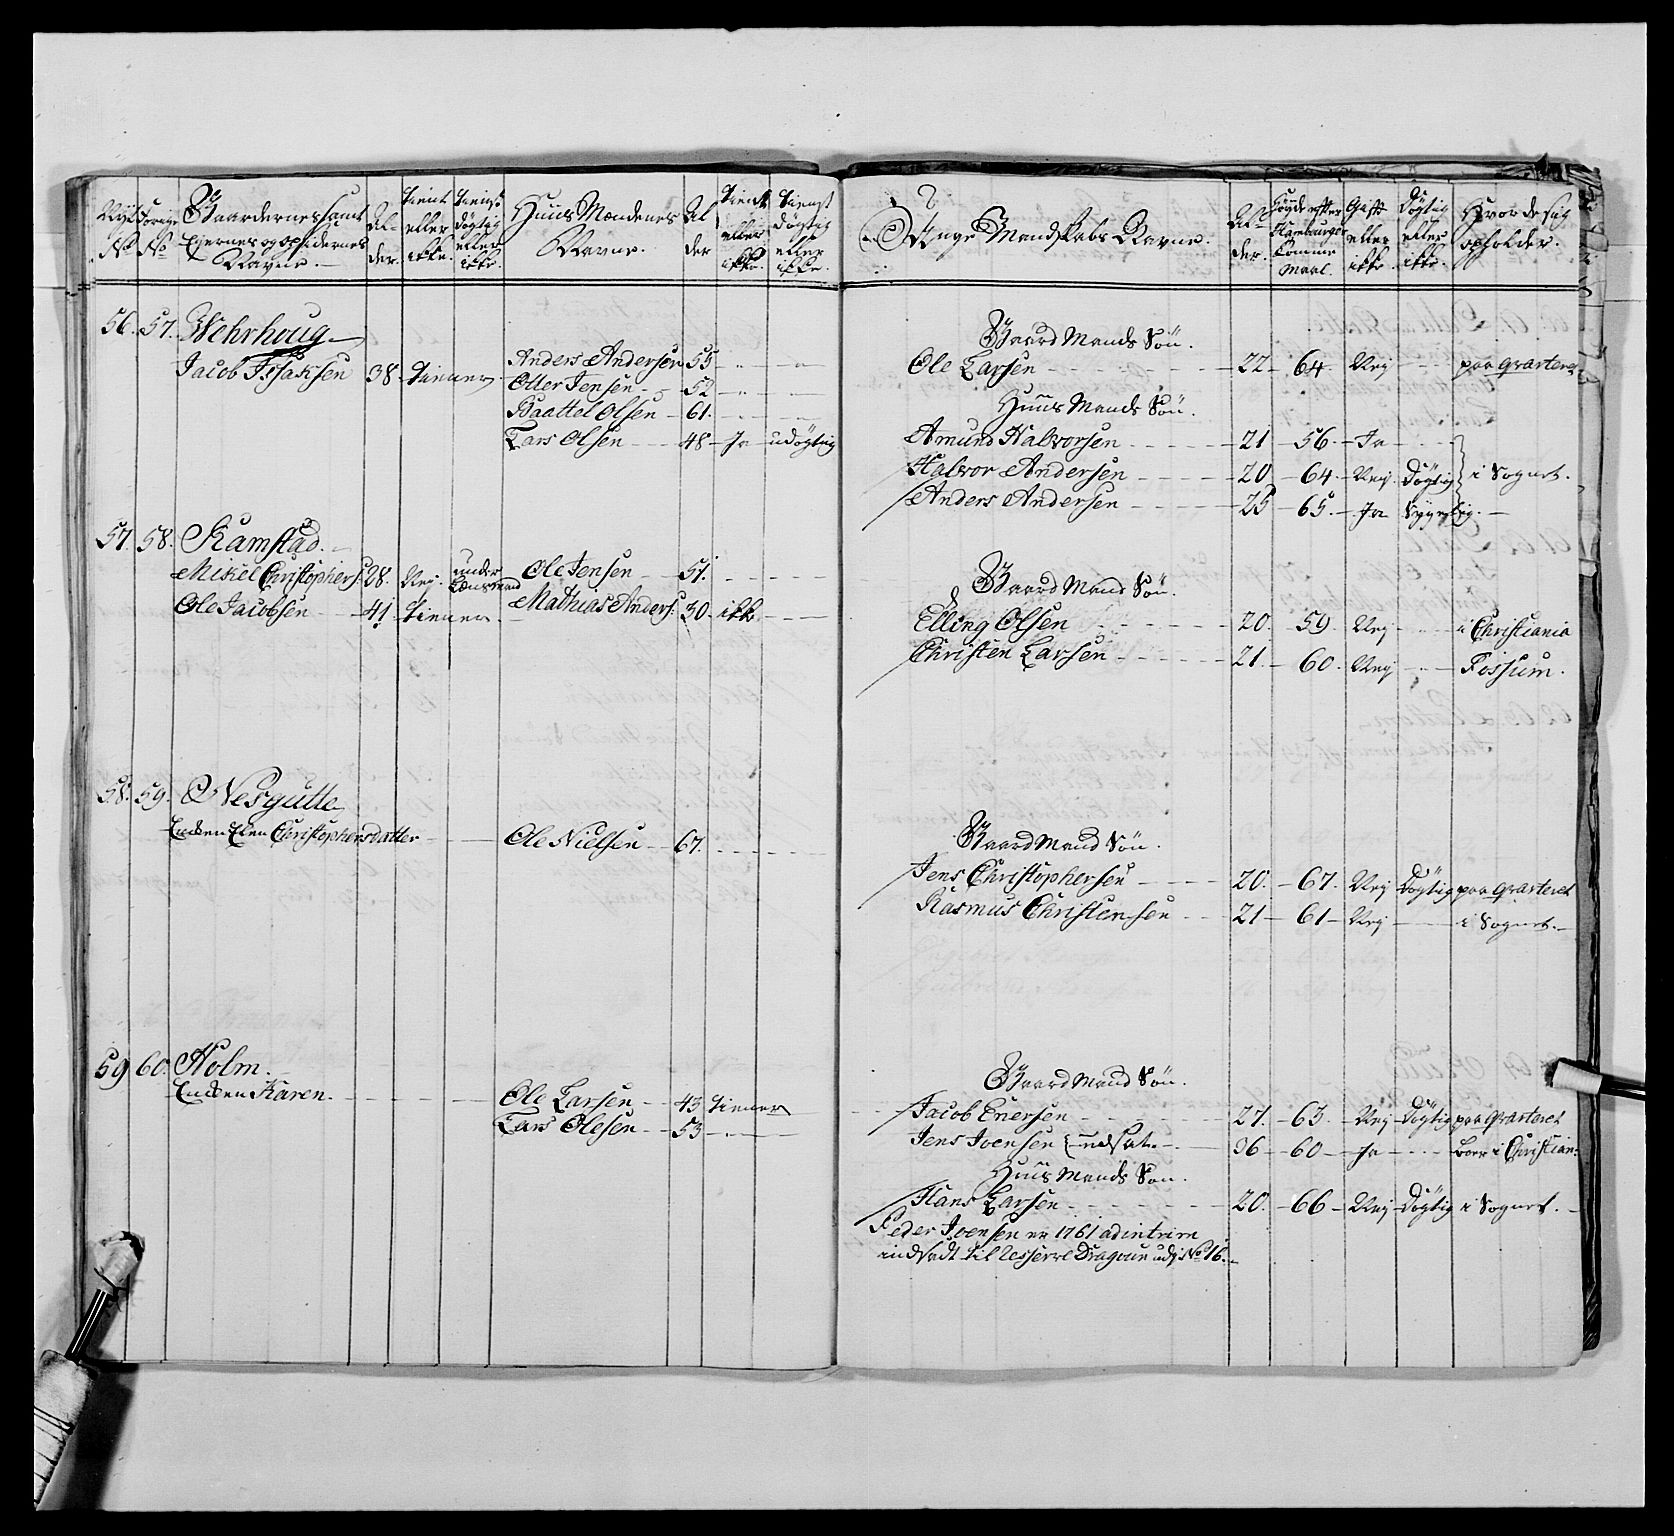 Nye No Forrige No Gaardernes samt Ejernes og opsidernes Navne. Alder. tient eller ikke. tienst døgtig eller ikke. Huus Mændenes Navne. Alder tient eller ikke. tienst døgtig eller ikke.
56. 57. Wehrhoug
Jacob Issaksen 38 tiener Anders Andersen 55
Oller Jensen 52
Baattel Olsen 61.
Lars Olsen 48 Ja udøgtig
57. 58. Ramstad.
Mikel Christophers: 28. Nej. under Lænsmand Ole Jensen 51.
Ole Jacobsen 41 tiener Mathias Anders: 30. ikke
58. 59. Nesgutte
Enken Elen Christophersdatter Ole Nielsen 67.
59 60. Holm.
Enken Karen. Ole Larsen 43 tiener
Lars Olesen 53
Unge Mandskabs Navne. Alder. Høyde efter Hamburger Tomme Maal. Gift eller ikke. Døgtig eller ikke. Hvor de sig opholder.
Gaard Mands Søn.
Ole Larsen 22 64 Nej paa qvarteret
Huus Mands Søn.
Amund Halvorsen 21 56 Ja
Halvor Andersen 20 64 Nej Døgtig i Sognet.
Anders Andersen 25 65. Ja
Gaard Mand Søn.
Elling Olsen 20. 59 Nej i Christiania
Christen Larsen 21. 60. Nej Fossum.
Gaard Mand Søn.
Jens Christophersen 20. 67. Nej Døgtig paa qvarteret
Rasmus Christensen 21 61 Nej i Sognet.
Gaard Mand Søn.
Jacob Enersen 27. 63. Nej Døgtig paa qvarteret
Jens Joensen udsat 36 60 Ja boer i Christian:
Huus Mands Søn.
Hans Larsen 20. 66 Nej Døgtig i Sognet.
Peder Joensen er 1761 ad intrim
indsadt til Resserve Dragoun No 16.